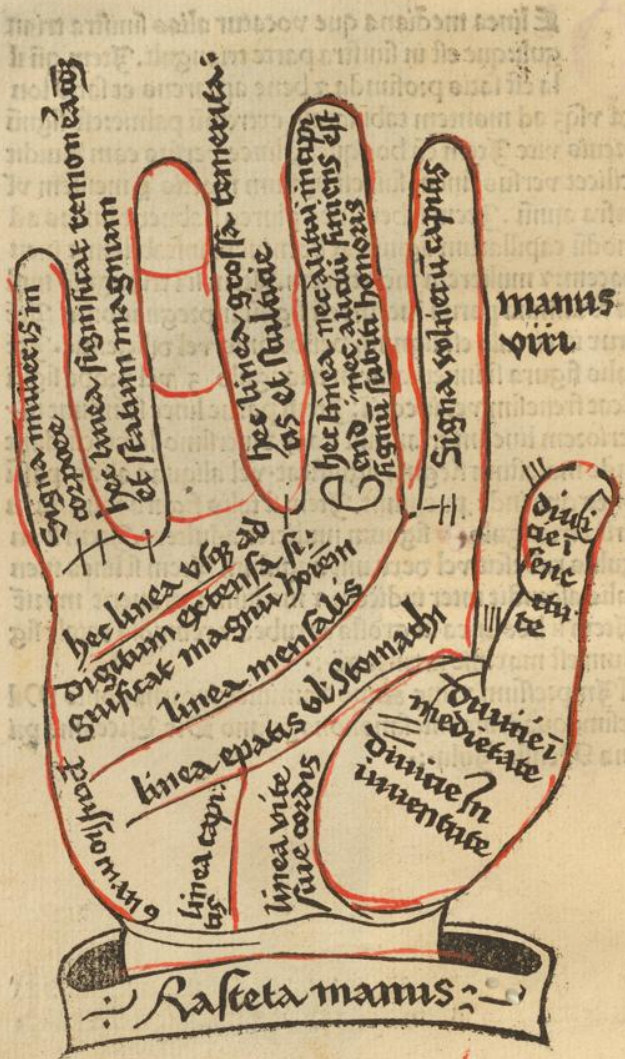 Signa mulieris in
corpore
hec linea significat temoneacoȝ
et statum magnum
hec linea grossa temerita:
os et stulticie
hec linea nec aliud incipi
end' nec aliud finiens est
signū subiti honoris
Signa vulnerū capitis
manus
viri
diuiti
cie ī
senec
tu
te
hec linea vsqȝ ad
digitum extensa si:
gnificat magnū hoīem
linea mensalis
linea epatis vl' Stomachi
diuicie ī
medietate
diuicie in
iuuentute
linea vite
siue cordis
linea capi:
tis
Rasceta manus